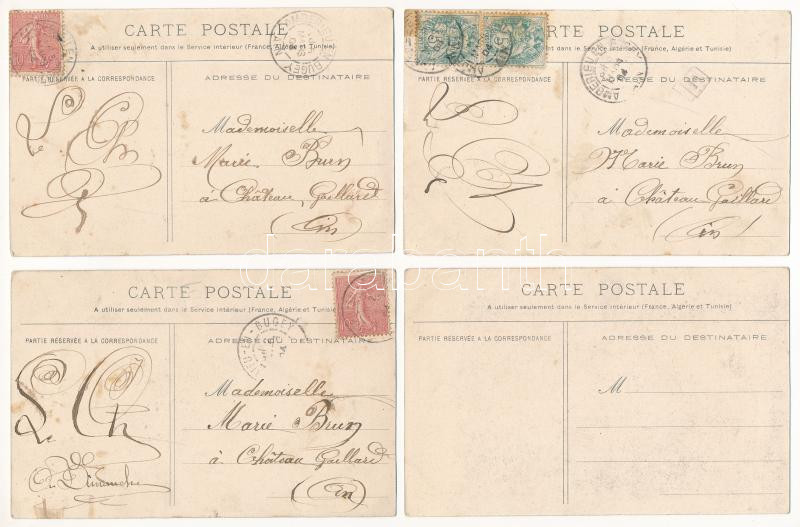 CARTE POSTALE
A utiliser seulement dans le Service intérieur (France, Algérie et Tunisie)
PARTIE RÉSERVÉE A LA CORRESPONDANCE
ADRESSE DU DESTINATAIRE
Mademoiselle
Marie Brun
à Château Gaillard
(Ain)
CARTE POSTALE
A utiliser seulement dans le Service intérieur (France, Algérie et Tunisie)
PARTIE RÉSERVÉE A LA CORRESPONDANCE
ADRESSE DU DESTINATAIRE
Mademoiselle
Marie Brun
à Château Gaillard
(Ain)
CARTE POSTALE
A utiliser seulement dans le Service intérieur (France, Algérie et Tunisie)
BUGEY
PARTIE RÉSERVÉE A LA CORRESPONDANCE
ADRESSE DU DESTINATAIRE
Mademoiselle
Marie Brun
à Château Gaillard
(Ain)
Dimanche
CARTE POSTALE
A utiliser seulement dans le Service intérieur (France, Algérie et Tunisie)
PARTIE RÉSERVÉE A LA CORRESPONDANCE
ADRESSE DU DESTINATAIRE
M
darabanth